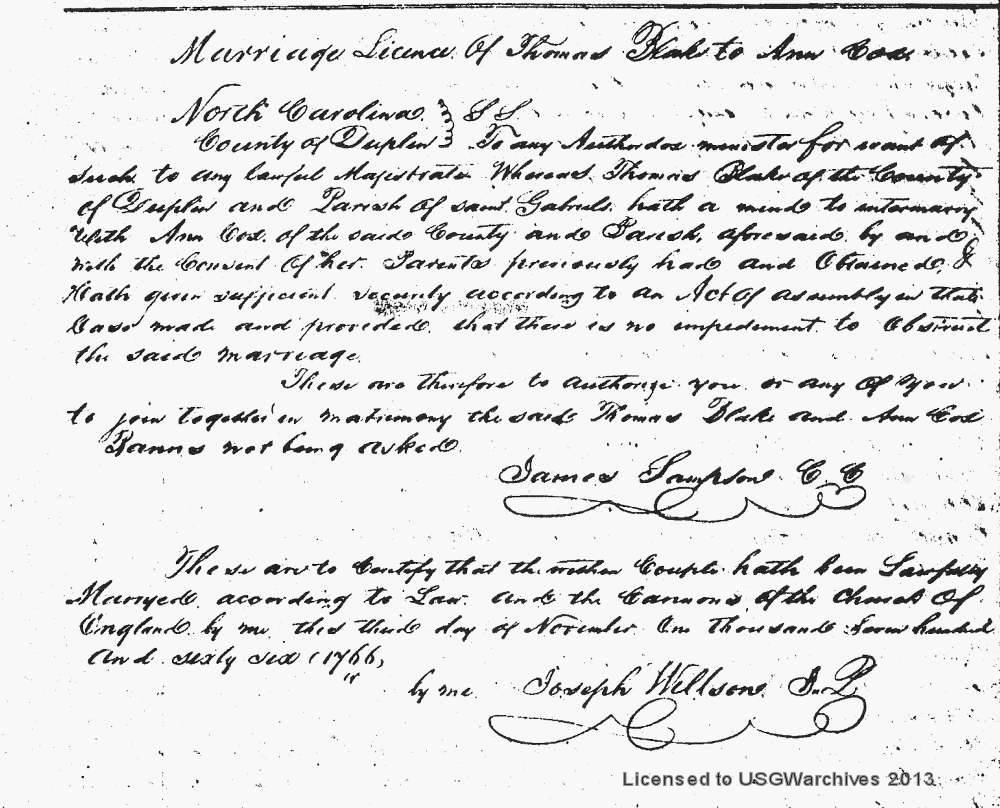 Marriage Licence Of Thomas Blake to Ann Cox
North Carolina } S S
County of Duplin } To any Authordox minister for want of
such to any lawful Magistrate Whereas Thomas Blake of the County
of Duplin and Parish Of saint Gabriels hath a mind to intermarry
With Ann Cox of the said County and Parish, aforesaid by and
with the Consent Of her Parents previously had and Obtained, &
Hath given sufficient security according to an Act Of assembly in that
Case made and provided that there is no impediment to Obstruct
the said marriage.
These are therefore to authorize you or any Of you
to join together in matrimony the said Thomas Blake and Ann Cox
Banns not being asked
James Sampson C. C
These are to Certify that the within Couple hath been Lawfully
Marryed according to Law and the Cannons of the Church Of
England by me this third day of November One thousand Seven hundred
and sixty six (1766)
by me Joseph Willson J. P.
Licensed to USGWarchives 2013